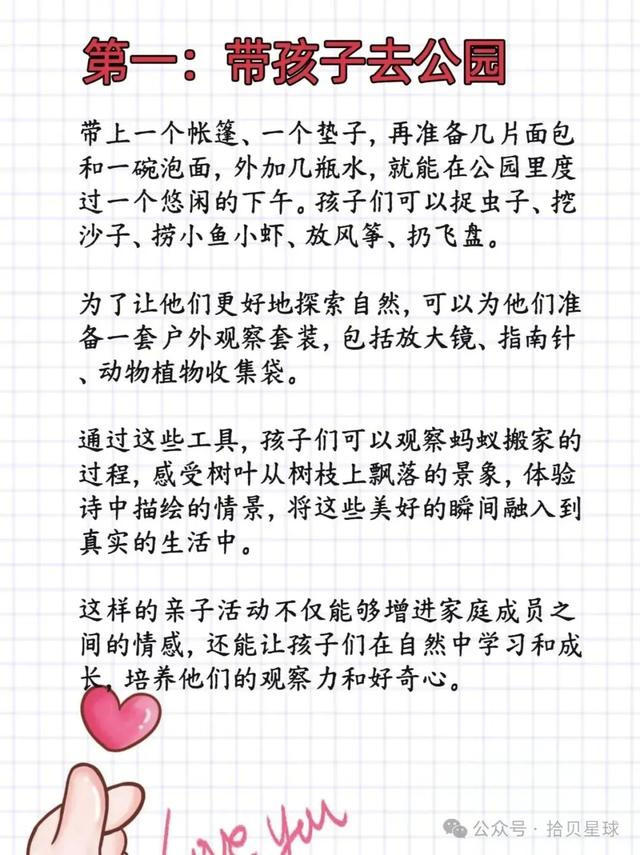 第一：带孩子去公园
带上一个帐篷、一个垫子，再准备几片面包
和一碗泡面，外加几瓶水，就能在公园里度
过一个悠闲的下午。孩子们可以捉虫子、挖
沙子、捞小鱼小虾、放风筝、扔飞盘。
为了让他们更好地探索自然，可以为他们准
备一套户外观察套装，包括放大镜、指南针
、动物植物收集袋。
通过这些工具，孩子们可以观察蚂蚁搬家的
过程，感受树叶从树枝上飘落的景象，体验
诗中描绘的情景，将这些美好的瞬间融入到
真实的生活中。
这样的亲子活动不仅能够增进家庭成员之
间的情感，还能让孩子们在自然中学习和成
长，培养他们的观察力和好奇心。
Love You
公众号·拾贝星球